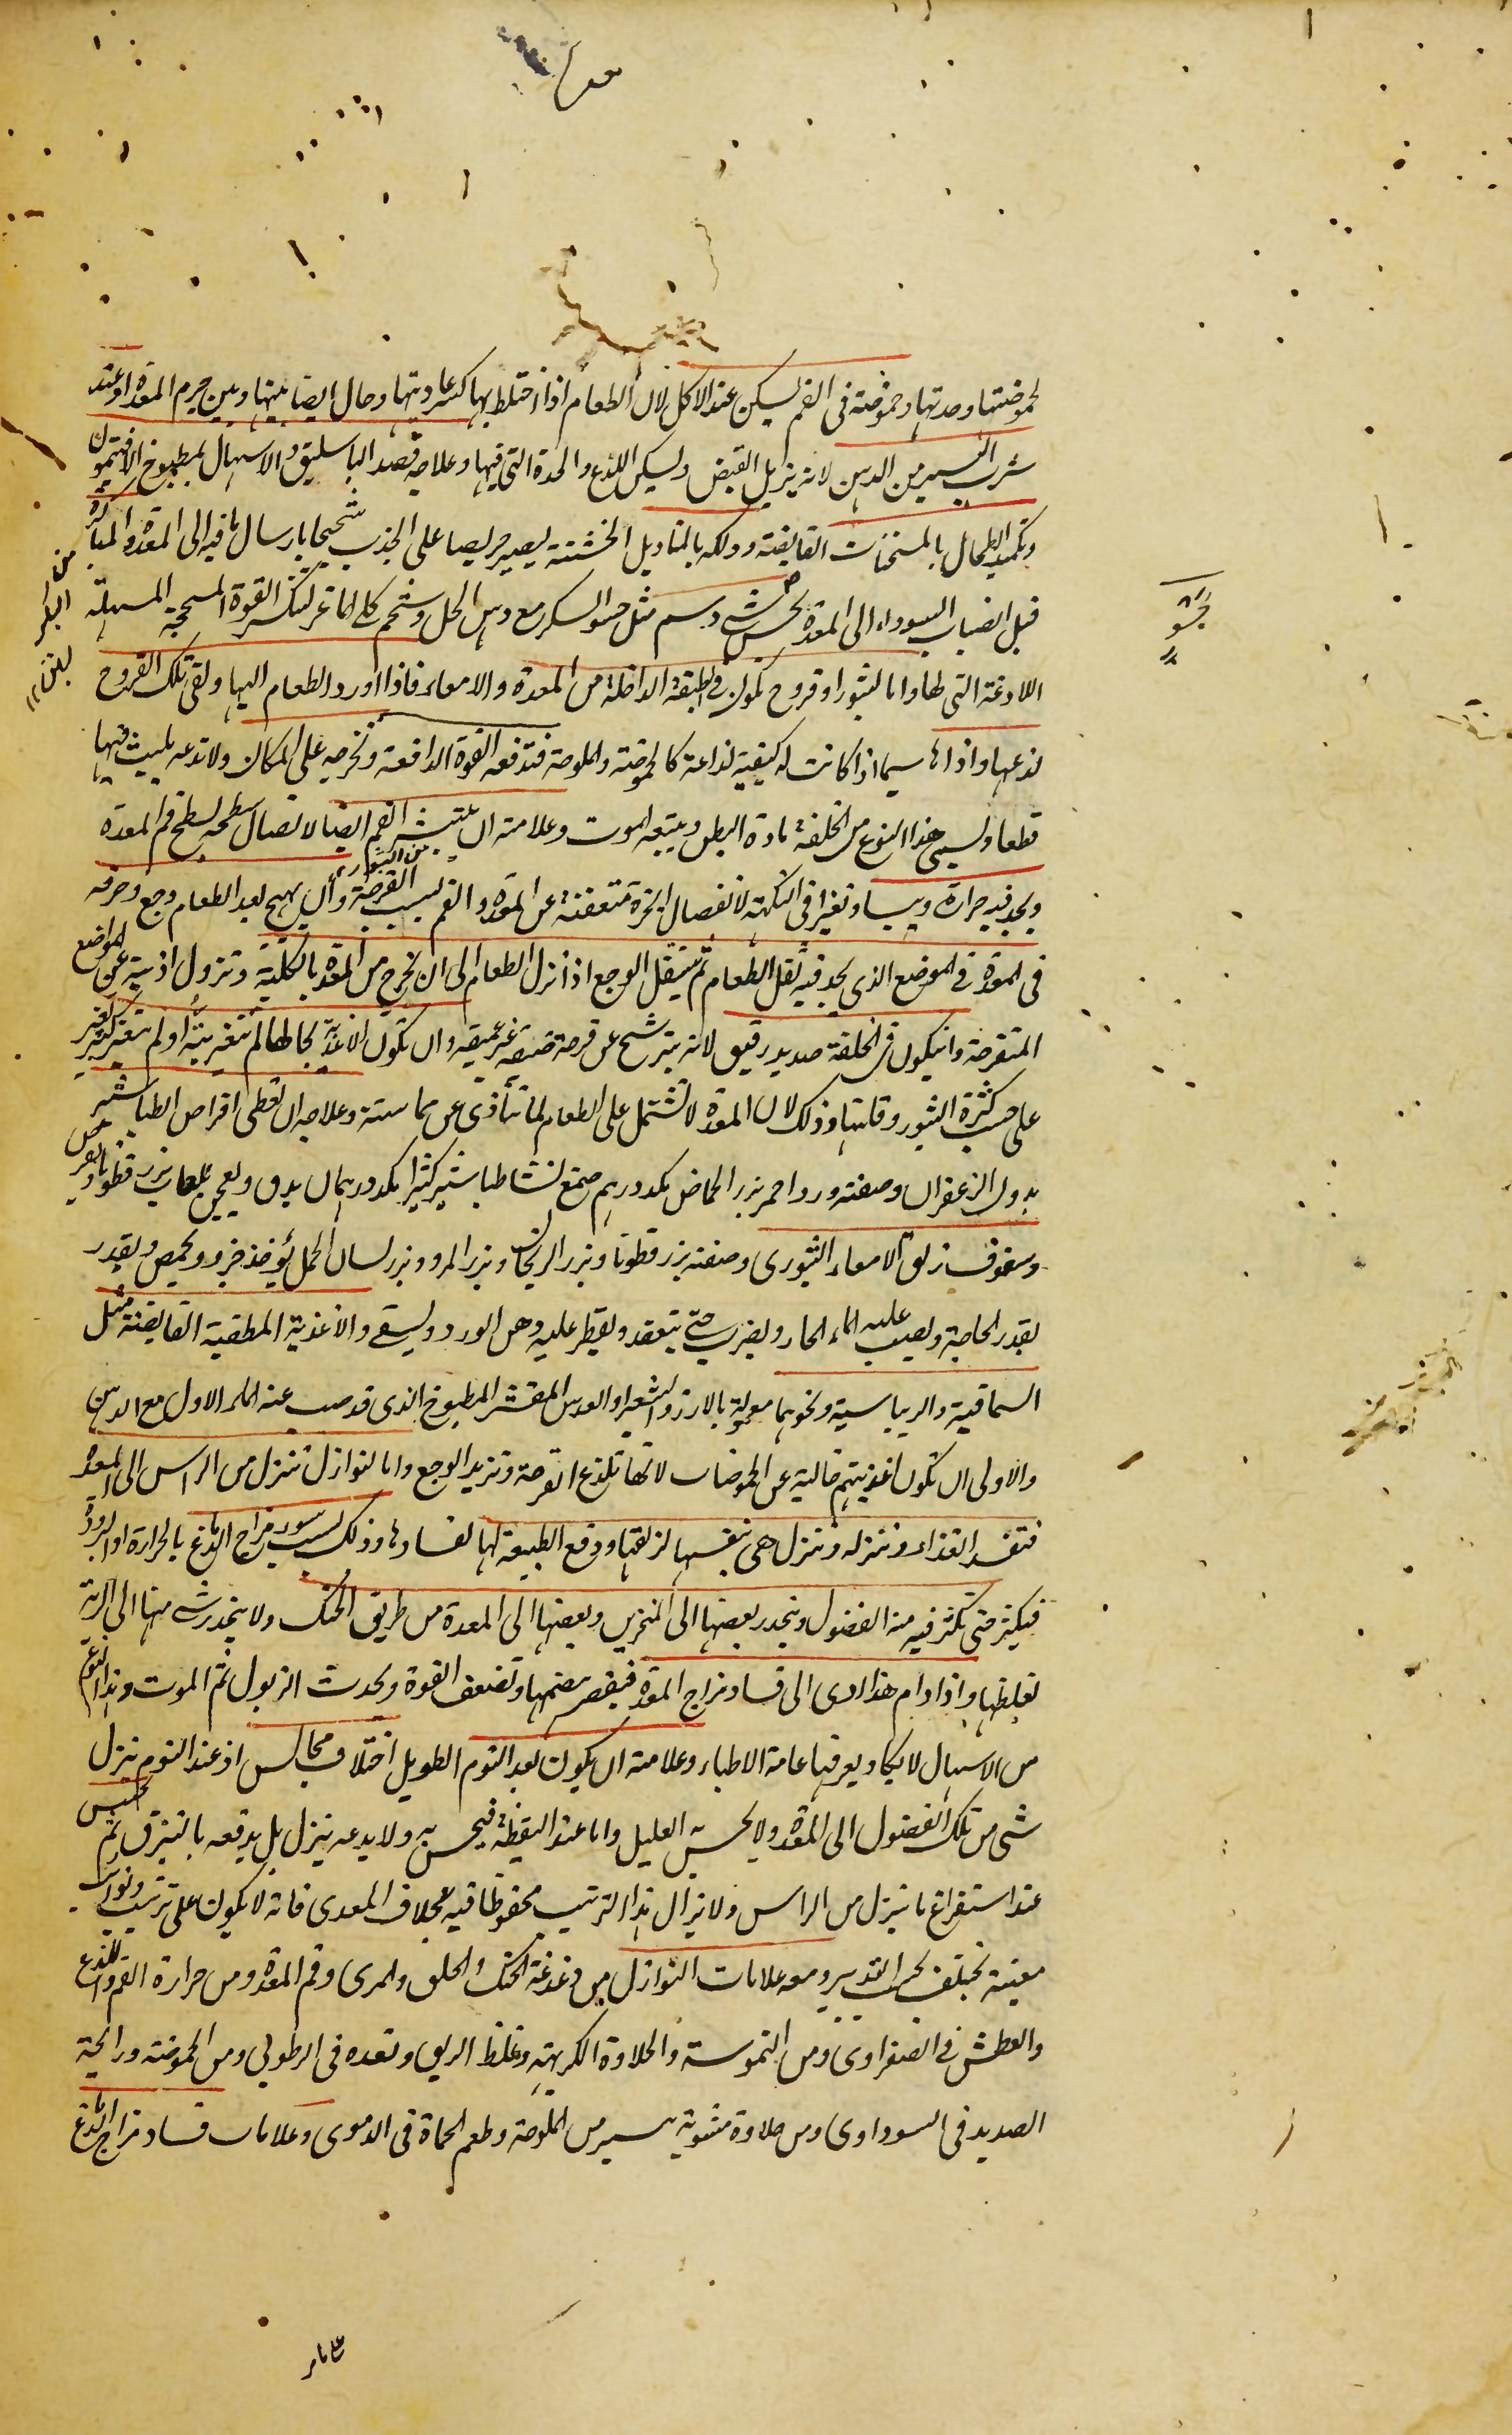 لحموضتها وحدتها وحموضته فى الفم يسكن عند الاكل لان الطعام اذا اختلط بها كسر عاديتها وحال ايضا بينها وبين جرم المعدة او عند
شرب اليسير من الدهن لانه يزيل القبض ويسكن اللذع والحدة التى فيها وعلاجه فصد الباسليق والاسهال بمطبوخ الافتيمون
وتكميد الطحال بالمسخنات القابضة ودلكه بالمناديل الخشنة ليصير حريصا على الجذب شحيحا بارسال ما فيه الى المعدة والمبادرة
قبل انصباب السوداء الى المعدة بحسو شئ دسم مثل حسو السكر مع دهن الحل وشحم كلى الماعز لتنكسر القوة المسحجة المسهلة
اللاذعة التى لها واما لبثور او قروح تكون فى الطبقة الداخلة من المعدة والامعاء فاذا ورد الطعام اليها ولقى تلك القروح
لذعها واذاها سيما اذا كانت له كيفية لذاعة كالحموضة والملوحة فتدفعه القوة الدافعة وتخرجه على المكان ولا تدعه يلبث فيها
قطعا ويسمى هذا النوع من الخلفة مادة البطن ويتبعه الموت وعلامته ان يبتثر الفم ايضا لاتصال سطحه بسطح فم المعدة
ويجد فيه حرارة ويبسا وتغيرا فى النكهة لانفصال ابخرة متعفنة عن المعدة والفم بسبب القرحة وان يهيج بعد الطعام وجع وحرقة
فى المعدة فى الموضع الذى يجد فيه ثقل الطعام ثم ينتقل الوجع اذا نزل الطعام الى ان يخرج من المعدة بالكلية وتزول اذيته عن المواضع
المتقرحة وان يكون فى الخلفة صديد رقيق لانه يترشح عن قرحة ضيقة غير عميقة وان تكون الاغذية بحالها لم تتغير البتة او لم تتغير كثير تغير
على حسب كثرة البثور وقلتها وذلك لان المعدة لا تشتمل على الطعام لما تتأذى عن مماسته وعلاجه ان تعطى اقراص الطباشير
بدون الزعفران وصفته ورد احمر بزر الحماض بكد درهم صمغ نشا طباشير كثيرا بكد درهمان يدق ويعجن بلعاب بزر قطونا ويقرص
وسفوف زلق الامعاء البثورى وصفته بزر قطونا وبزر الريحان وبزر المرو وبزر لسان الحمل يؤخذ جزء ويحمص ويقدر
بقدر الحاجة ويصب عليه الماء الحار ويضرب حتى ينعقد ويقطر عليه دهن الورد ويسقى والاغذية المطفية القابضة مثل
السماقية والريباسية ونحوهما معمولة بالارز والشعير او العدس المقشر المطبوخ الذى قد صب عنه الماء الاول مع الدهن
والاولى ان تكون اغذيتهم خالية عن الحموضات لانها تلذع القرحة وتزيد الوجع واما لنوازل تنزل من الراس الى المعدة
فتفسد الغذاء وتنزله وتنزل هى بنفسها لزلقها ودفع الطبيعة لها لفسادها وذلك بسبب سوء مزاج الدماغ بالحرارة او البرودة
فيكثر حتى تكثر فيه من الفضول وينحدر بعضها الى المنخرين وبعضها الى المعدة من طريق الحنك ولا ينحدر شئ منها الى الرية
لغلظها واذا دام هذا ادى الى فساد مزاج المعدة فينقص هضمها وتضعف القوة ويحدث الذبول ثم الموت وهذا النوع
من الاسهال لا يكاد يعرفها عامة الاطباء وعلامته ان يكون بعد النوم الطويل اختلاف مجالس اذ عند النوم ينزل
شئ من تلك الفضول الى المعدة ولا يحس به العليل واما عند اليقظة فيحس به ولا يدعه ينزل بل يدفعه بالتبزق ثم يحتبس
عند استفراغ ما ينزل من الراس ولا يزال هذا الترتيب محفوظا فيه بخلاف المعدى فانه لا يكون على ترتيب ونوائب
معينة تختلف بحسب التدبير ومعه علامات النوازل من دغدغة الحنك والحلق والمرى وفم المعدة ومن حرارة الفم واللذع
والعطش فى الصفراوى ومن التموسة والحلاوة الكريهة وغلظ الريق وتعدد فى الرطوبى ومن الحموضة ورائحة
الصديد فى السوداوى ومن حلاوة مشوبة بيسير من الملوحة وطعم الحماة فى الدموى وعلامات فساد مزاج الدماغ